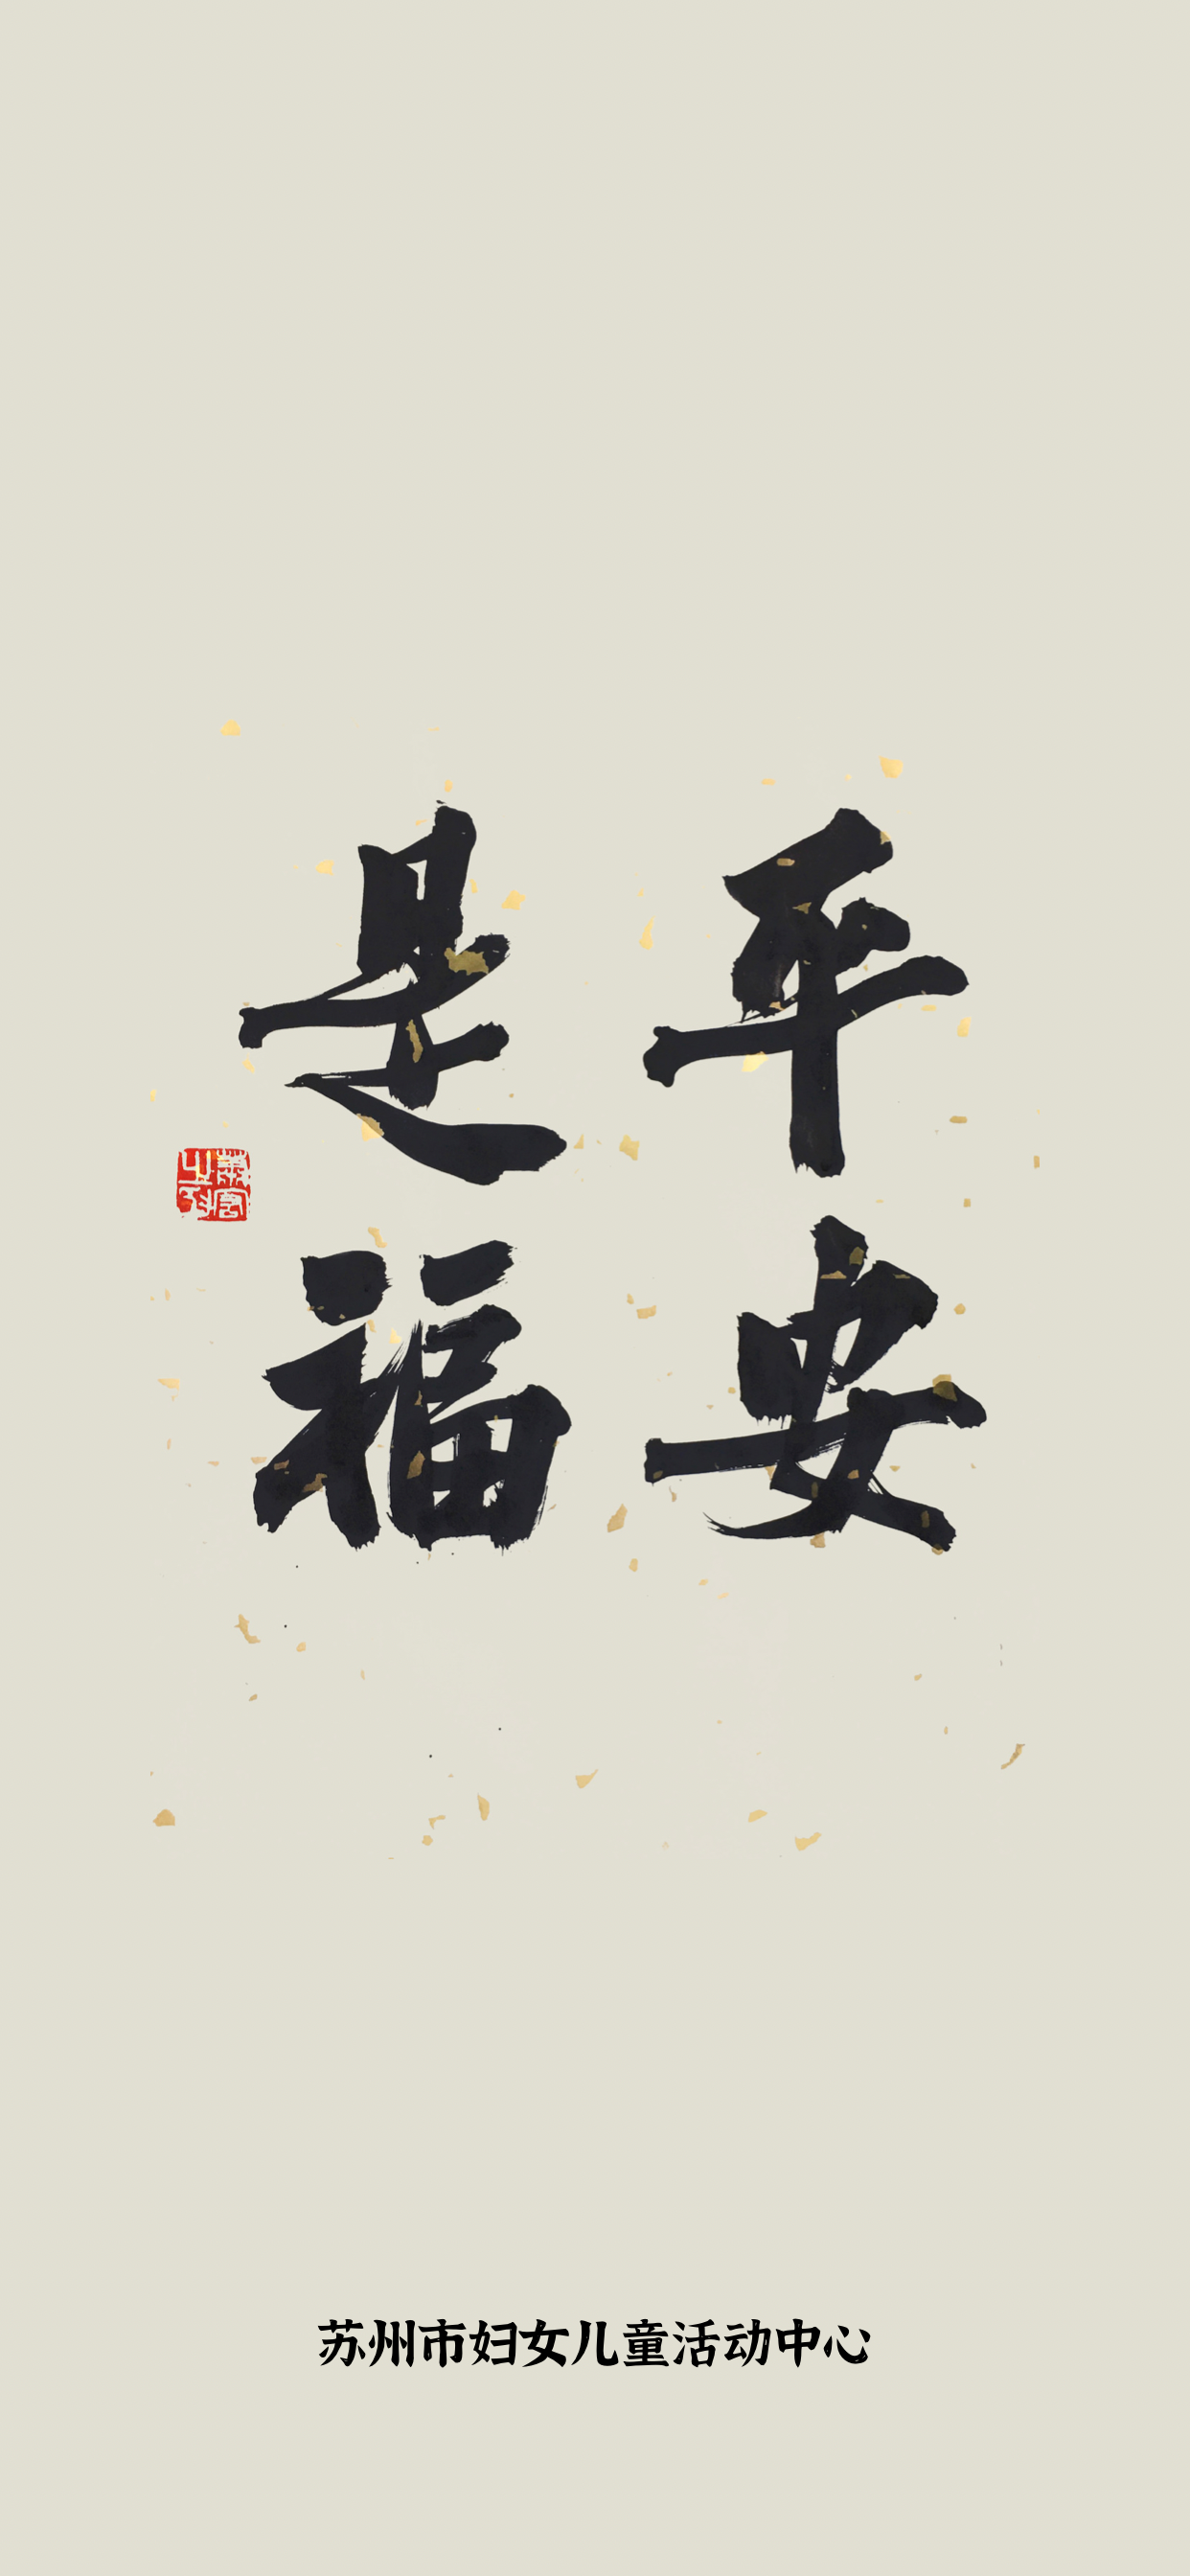 平安
是福
苏州市妇女儿童活动中心